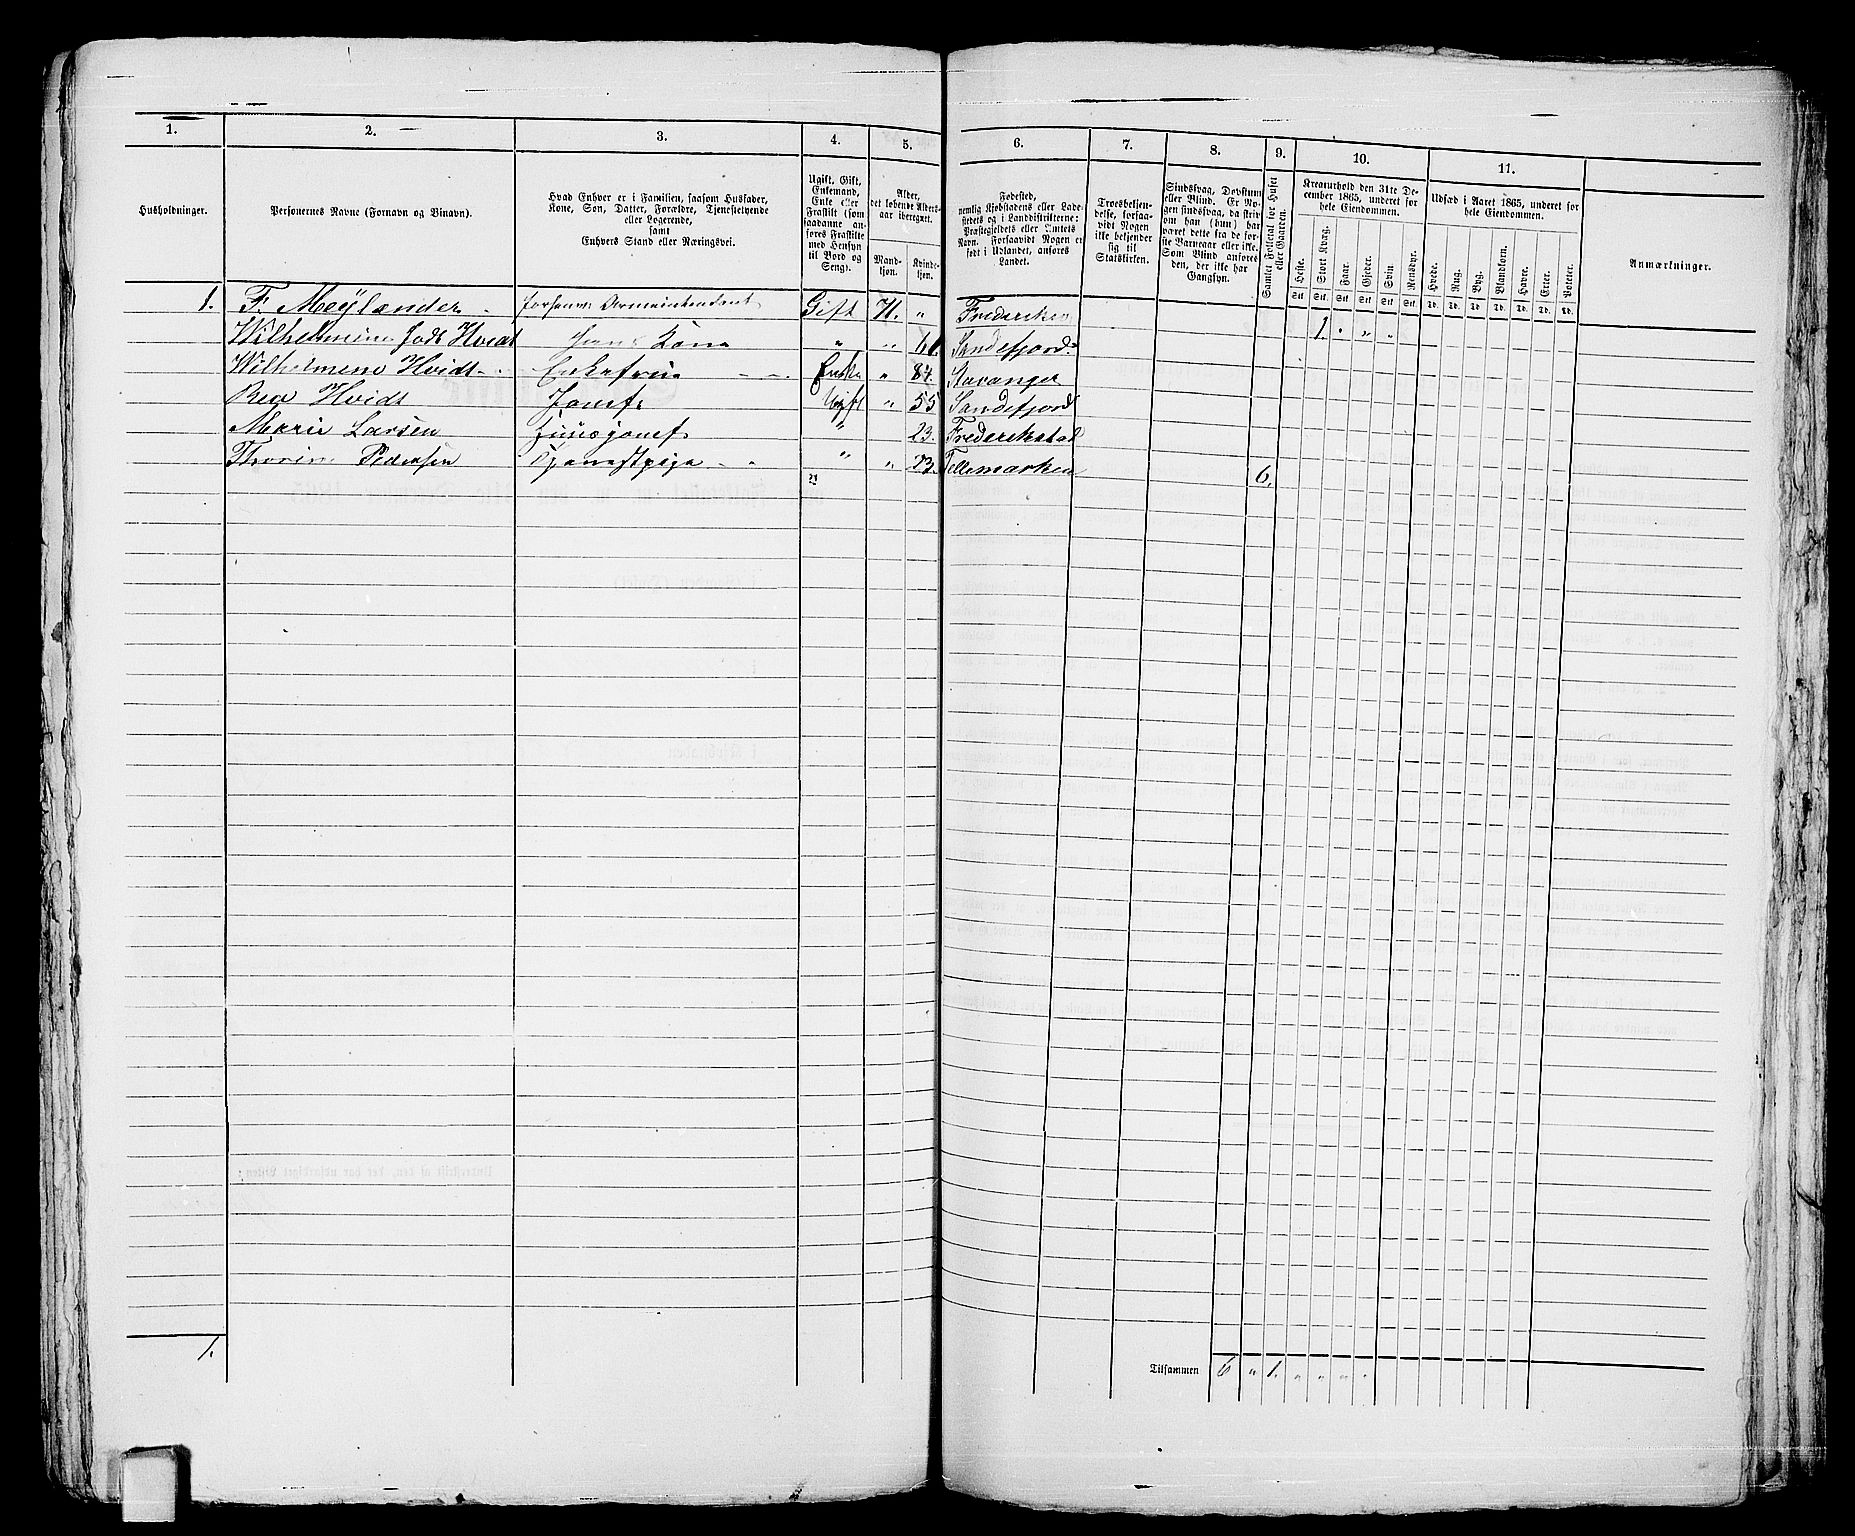 1. 2. 3. 4. 5. 6. 7. 8. 9. 10. 11.
Husholdninger.
Personernes Navne (Fornavn og Binavn).
Hvad Enhver er i Familien, saasom Husfader,
Kone, Søn, Datter, Forældre, Tjenestetyende
eller Logerende,
samt
Enhvers Stand eller Næringsvei.
Ugift, Gift,
Enkemand,
Enke eller
Fraskilt (som
saadanne an-
føres Fraskilte
med Hensyn
til Bord og
Seng).
Alder,
det løbende Alders-
aar iberegnet.
Mand-
kjøn.
Kvinde-
kjøn.
Fødested,
nemlig Kjøbstadens eller Lade-
stedets og i Landdistrikterne:
Præstegjeldets eller Amtets
Navn. Forsaavidt Nogen er
født i Udlandet, anføres
Landet.
Troesbekjen-
delse, forsaa-
vidt Nogen
ikke bekjender
sig til
Statskirken.
Sindssvag, Døvstum
eller Blind. Er No-
gen sindssvag, da skriv
om han (hun) har
været dette fra de før-
ste Barneaar eller ikke.
Som Blind anføres
den, der ikke har
Gangsyn.
Samlet Folketal for Huset
eller Gaarden.
Kreaturhold den 31te De-
cember 1865, underet for
hele Eiendommen.
Heste. Stort Kvæg. Faar. Gjeder. Svin. Rensdyr.
Stk. Stk. Stk. Stk. Stk. Stk.
Udsæd i Aaret 1865, underet for
hele Eiendommen.
Hvede. Rug. Byg. Blandkorn. Havre. Erter. Poteter.
Td. Td. Td. Td. Td. Td. Td.
Anmærkninger.
1. F. Meÿlander Gift 71. „ 1. „ „ „
Wilhelmine født Hvidt hans Kone „ „ Sandefjord.
Wilhelmene Hvidt Enkefrue Enke „ 87. Stavanger
Hvidt „ 55 Sandefjord
Marie Larsen „ 23. Frederikstad
Pedersen „ „ Tellemarken 6.
1.
Tilsammen 6 „ 1. „ „ „ „